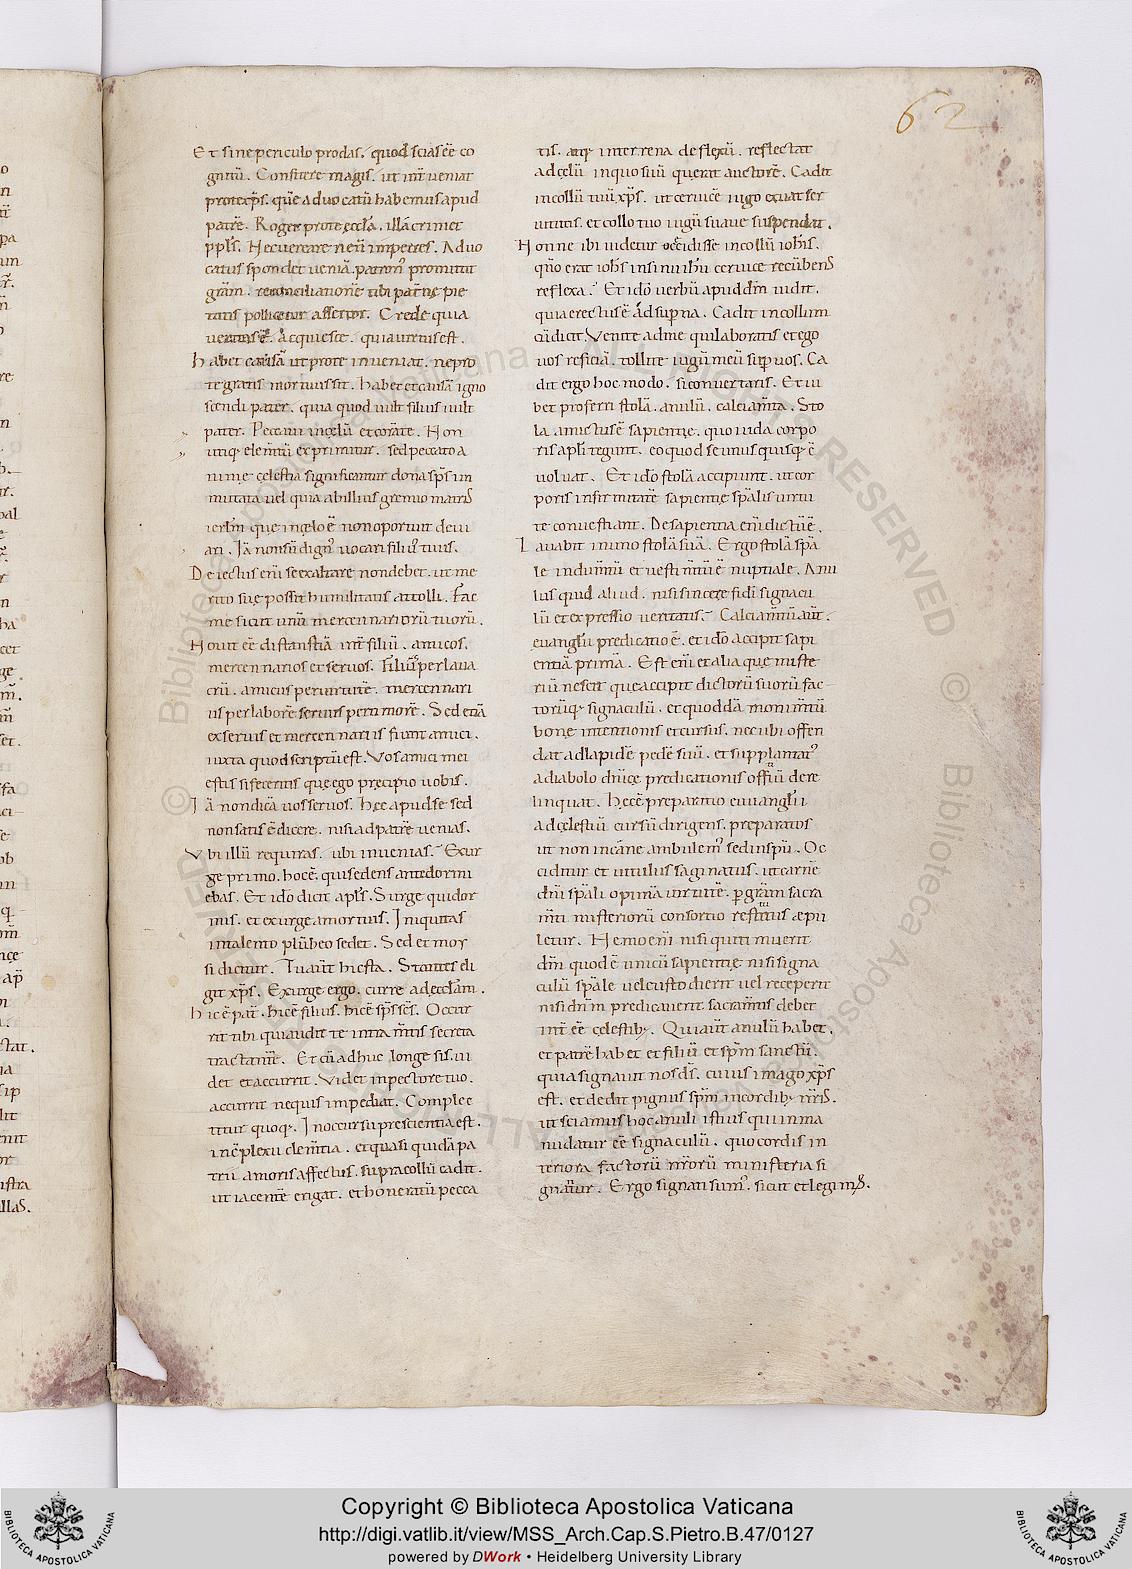 62
Et sine periculo prodas. quod scias eẽ co
gnitũ. Confitere magis. ut int̃ueniat
pro te xp̃s. quẽ aduocatũ habemus apud
patrẽ. Roget pro te eccl̃a. illacrimet
ppl̃s. Nec uereare ne ñ impetres. Aduo
catus spondet ueniã. patron᾿ promittit
gr̃am. reconciliationẽ tibi patnę pie
tatis pollicetur assertor. Crede quia
ueritas ẽ. acquiesce. quia uirtus est.
Habet causã ut pro te inueniat. ne pro
te gratis mortuus sit. habet et causã igno
scendi pater. quia quod uult filius uult
pater. Peccaui in cęlũ et corã te. Non
utiq; elem̃tũ exprimitur. sed peccato a
nimę cęlestia significantur dona sp̃s im
mutata uel quia ab illius gremio matris
ierl̃m que in cęlo ẽ non oportuit deui
ari. Iã non sũ dign᾿ uocari fili᾿ tuus.
Deiectus eni se exaltare non debet. ut me
rito suę possit humilitatis attolli. Fac
me sicut unũ mercennariorũ tuorũ.
Nouit eẽ distantiã int̃ filiũ. amicos.
mercennarios et seruos. Fili᾿ per laua
crũ. amicus per uirtutẽ. mercennari
us per laborẽ seruus per timorẽ. Sed etiã
ex seruis et mercennariis fiunt amici.
iuxta quod scriptũ est. Vos amici mei
estis si feceritis quę ego pręcipio uobis.
Iã non dicã uos seruos. hęc apud se sed
non satis ẽ dicere. nisi ad patrẽ uenias.
Vbi illũ requiras. ubi inuenias. Exur
ge primo. hoc ẽ. qui sedens ante dormi
ebas. Et ido dicit apl̃s. Surge qui dor
mis. et exurge a mortuis. Iniquitas
in talento plũbeo sedet. Sed et moy
si dicitur. Tu aut̃ hic sta. Stantes eli
git xp̃s. Exurge ergo. curre ad eccl̃am.
hic ẽ pat̃. hic ẽ filius. hic ẽ sp̃s sc̃s. Occur
rit tibi qui audit te intra m̃tis secreta
tractantẽ. Et cũ adhuc longe sis. ui
det et accurrit. Videt in pectore tuo.
accurrit ne quis impediat. Comple
titur quoq;. In occursu prescientia est.
in cõplexu clem̃tia. et quasi quidã pa
trii amoris affectus. supra collũ cadit.
ut iacentẽ erigat. et honeratũ pecca
tis. atq; in terrena deflexũ. reflectat
ad cęlũ in quo suũ querat auctorẽ. Cadit
in collũ tuũ xp̃s. ut ceruicẽ iugo exuat ser
uitutis. et collo tuo iugũ suaue suspendat.
Nonne ibi uidetur occidisse in collũ ioh̃s.
qñ erat ioh̃s in sinu ih̃u ceruice recũbens
reflexa. Et ido uerbũ apud dm̃ uidit.
quia erectus ẽ ad sup̃na. Cadit in collum
cũ dicit. Venite ad me qui laboratis et ego
uos reficiã. tollite iugũ meũ sup̃ uos. Ca
dit ergo hoc modo. si conuertaris. Et iu
bet proferri stolã. anulũ. calciam̃ta. Sto
la amictus ẽ sapientię. quo nuda corpo
ris apl̃i tegunt. eo quod se unus quisq; ẽ
uoluat. Et ido stolã accipiunt. ut cor
poris infirmitatẽ sapientię sp̃alis uirtu
te conuestiant. De sapientia eni dictũ ẽ.
Lauabit in uino stolã suã. Ergo stola sp̃a
le indum̃tũ et uestim̃tũ ẽ nuptiale. Anu
lus quid aliud. nisi sincere fidi signacu
lũ et expressio ueritatis. Calciam̃tũ aut̃.
euangl̃ii predicatio ẽ. et ido accipit sapi
entiã primã. Est eni et alia que miste
riũ nescit que accipit dictorũ suorũ fac
torũq; signaculũ. et quoddã monim̃tũ
bonę intentionis et cursus. nec ubi offen
dat ad lapidẽ pedẽ suũ. et supplantat᾿
a diabolo dnicę predicationis officiũ dere
linquat. hęc ẽ preparatio euuangl̃ii
ad cęlestiũ cursũ dirigens. preparatos
ut non in carne ambulem᾿ sed in spũ. Oc
ciditur et uitulus saginatus. ut carnẽ
dni sp̃ali opimã uirtute. p̱ gr̃am sacra
m̃ti misteriorũ consortio restitutus æpu
letur. Nemo eni nisi qui timuerit
dm̃ quod ẽ initiũ sapientię nisi signa
culũ sp̃ale uel custodierit uel receperit
nisi dnm̃ predicauerit. sacram̃tis debet
int̃ eẽ cęlestib;. Qui aut̃ anulũ habet.
et patrẽ habet et filiũ et spm̃ sanctũ.
quia signauit nos ds̃. cuius imago xp̃s
est. et dedit pignus spm̃ in cordib; nr̃is.
ut sciamus hoc anuli istius qui in ma
nu datur eẽ signaculũ. quo cordis in
teriora factorũ nr̃orũ ministeria si
gnatur. Ergo signati sum᾿. sicut et legim᾿.
Copyright © Biblioteca Apostolica Vaticana
http://digi.vatlib.it/view/MSS_Arch.Cap.S.Pietro.B.47/0127
powered by DWork • Heidelberg University Library